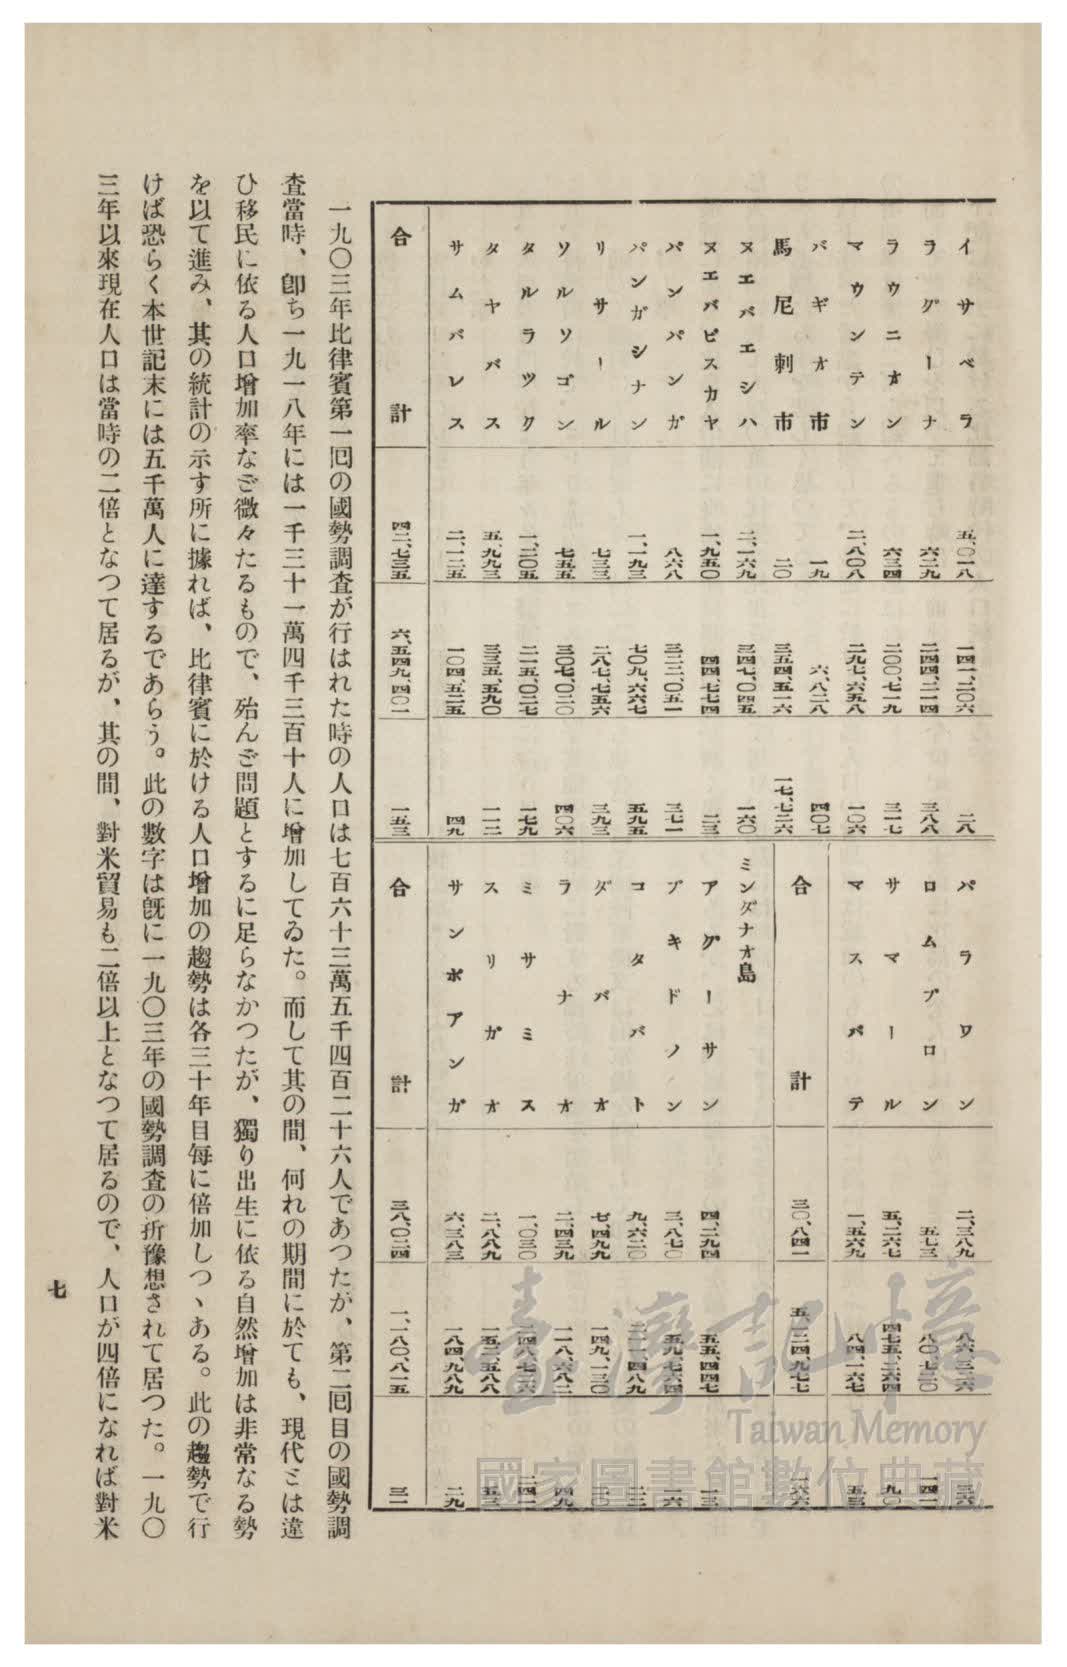 イサベラ 五、〇一八 一四一、二〇六 二八
ラグーナ 六二九 二四四、二一四 三八八
ラウニオン 六三四 二〇〇、七一九 三一七
マウンテン 二、八〇八 二九七、六五八 一〇六
バギオ市 一九 六、八二八 四〇七
馬尼剌市 二〇 三五四、五一六 一七、七二六
ヌエバエシハ 二、一六九 三四七、〇四五 一六〇
ヌエバビスカヤ 一、九五〇 四四、七七四 二三
パンパンガ 八六八 三二二、〇五一 三七一
パンガシナン 一、一九三 七〇九、六六七 五九五
リサール 七三三 二八七、七五六 三九三
ソルソゴン 七五五 三〇七、〇二〇 四〇六
タルラツク 一、二〇五 二一五、〇二七 一七九
タヤバス 五、九九三 三三五、五九〇 一一二
サムバレス 二、一二五 一〇四、五二五 四九
合計 四二、七三五 六、五四九、四〇一 一五三
パラワン 二、三八九 八六、三三六 三六
ロムブロン 五七三 八〇、七三〇 一四一
サマール 五、二六七 四七五、二六四 九〇
マスバテ 一、五六九 八四、一六七 五三
合計 三〇、八四二 五、一二四、九七七 一六六
ミンダナオ島
アグーサン 四、二九四 五五、四四七 一三
ブキドノン 三、八七〇 五九、七六四 一六
コタバト 九、六二〇 二一一、四八九 二二
ダバオ 七、四九九 一四九、一三〇 二〇
ラナオ 二、四三九 一一八、六八二 四九
ミサミス 一、〇三〇 二四八、七二六 二四一
スリガオ 二、八八九 一五二、五八八 五三
サンボアンガ 六、三八三 一八四、九八九 二九
合計 三八、〇二四 一、一八〇、八一五 三一
一九〇三年比律賓第一囘の國勢調査が行はれた時の人口は七百六十三萬五千四百二十六人であつたが、第二囘目の國勢調
査當時、卽ち一九一八年には一千三十一萬四千三百十人に增加してゐた。而して其の間、何れの期間に於ても、現代とは違
ひ移民に依る人口增加率など微々たるもので、殆んど問題とするに足らなかつたが、獨り出生に依る自然增加は非常なる勢
を以て進み、其の統計の示す所に據れば、比律賓に於ける人口增加の趨勢は各三十年目每に倍加しつヽある。此の趨勢で行
けば恐らく本世記末には五千萬人に達するであらう。此の數字は旣に一九〇三年の國勢調査の折豫想されて居つた。一九〇
三年以來現在人口は當時の二倍となつて居るが、其の間、對米貿易も二倍以上となつて居るので、人口が四倍になれば對米
七
臺灣記憶
Taiwan Memory
國家圖書館數位典藏